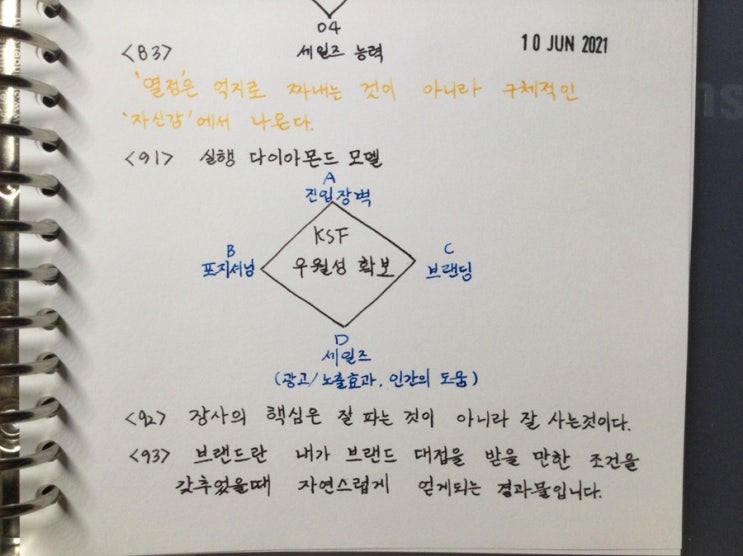 04
<83> 세일즈 능력
10 JUN 2021
'열정'은 억지로 짜내는 것이 아니라 구체적인
'자신감'에서 나온다.
<91> 실행 다이아몬드 모델
A
진입장벽
KSF
우월성 확보
B
포지셔닝
C
브랜딩
D
세일즈
(광고/노출효과, 인간의 도움)
<92> 장사의 핵심은 잘 파는 것이 아니라 잘 사는것이다.
<93> 브랜드란 내가 브랜드 대접을 받을 만한 조건을
갖추었을때 자연스럽게 얻게되는 결과물입니다.